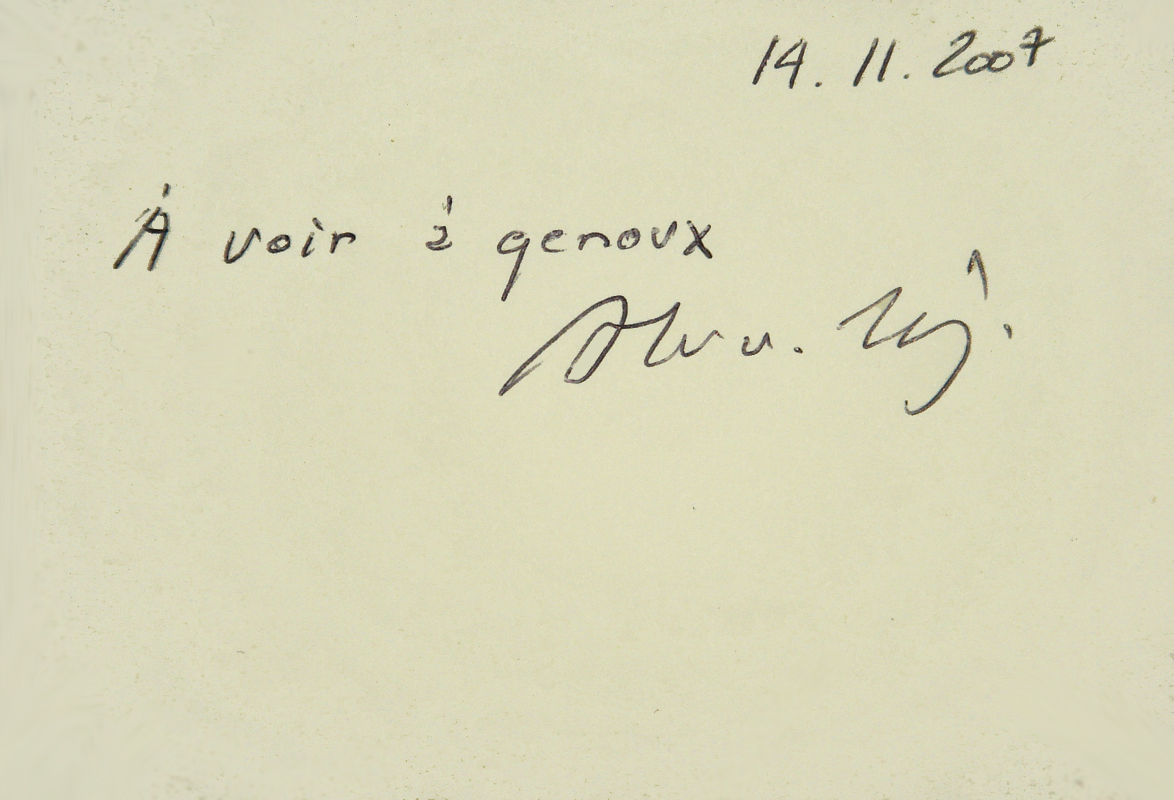 14. 11. 2007
À voir à genoux